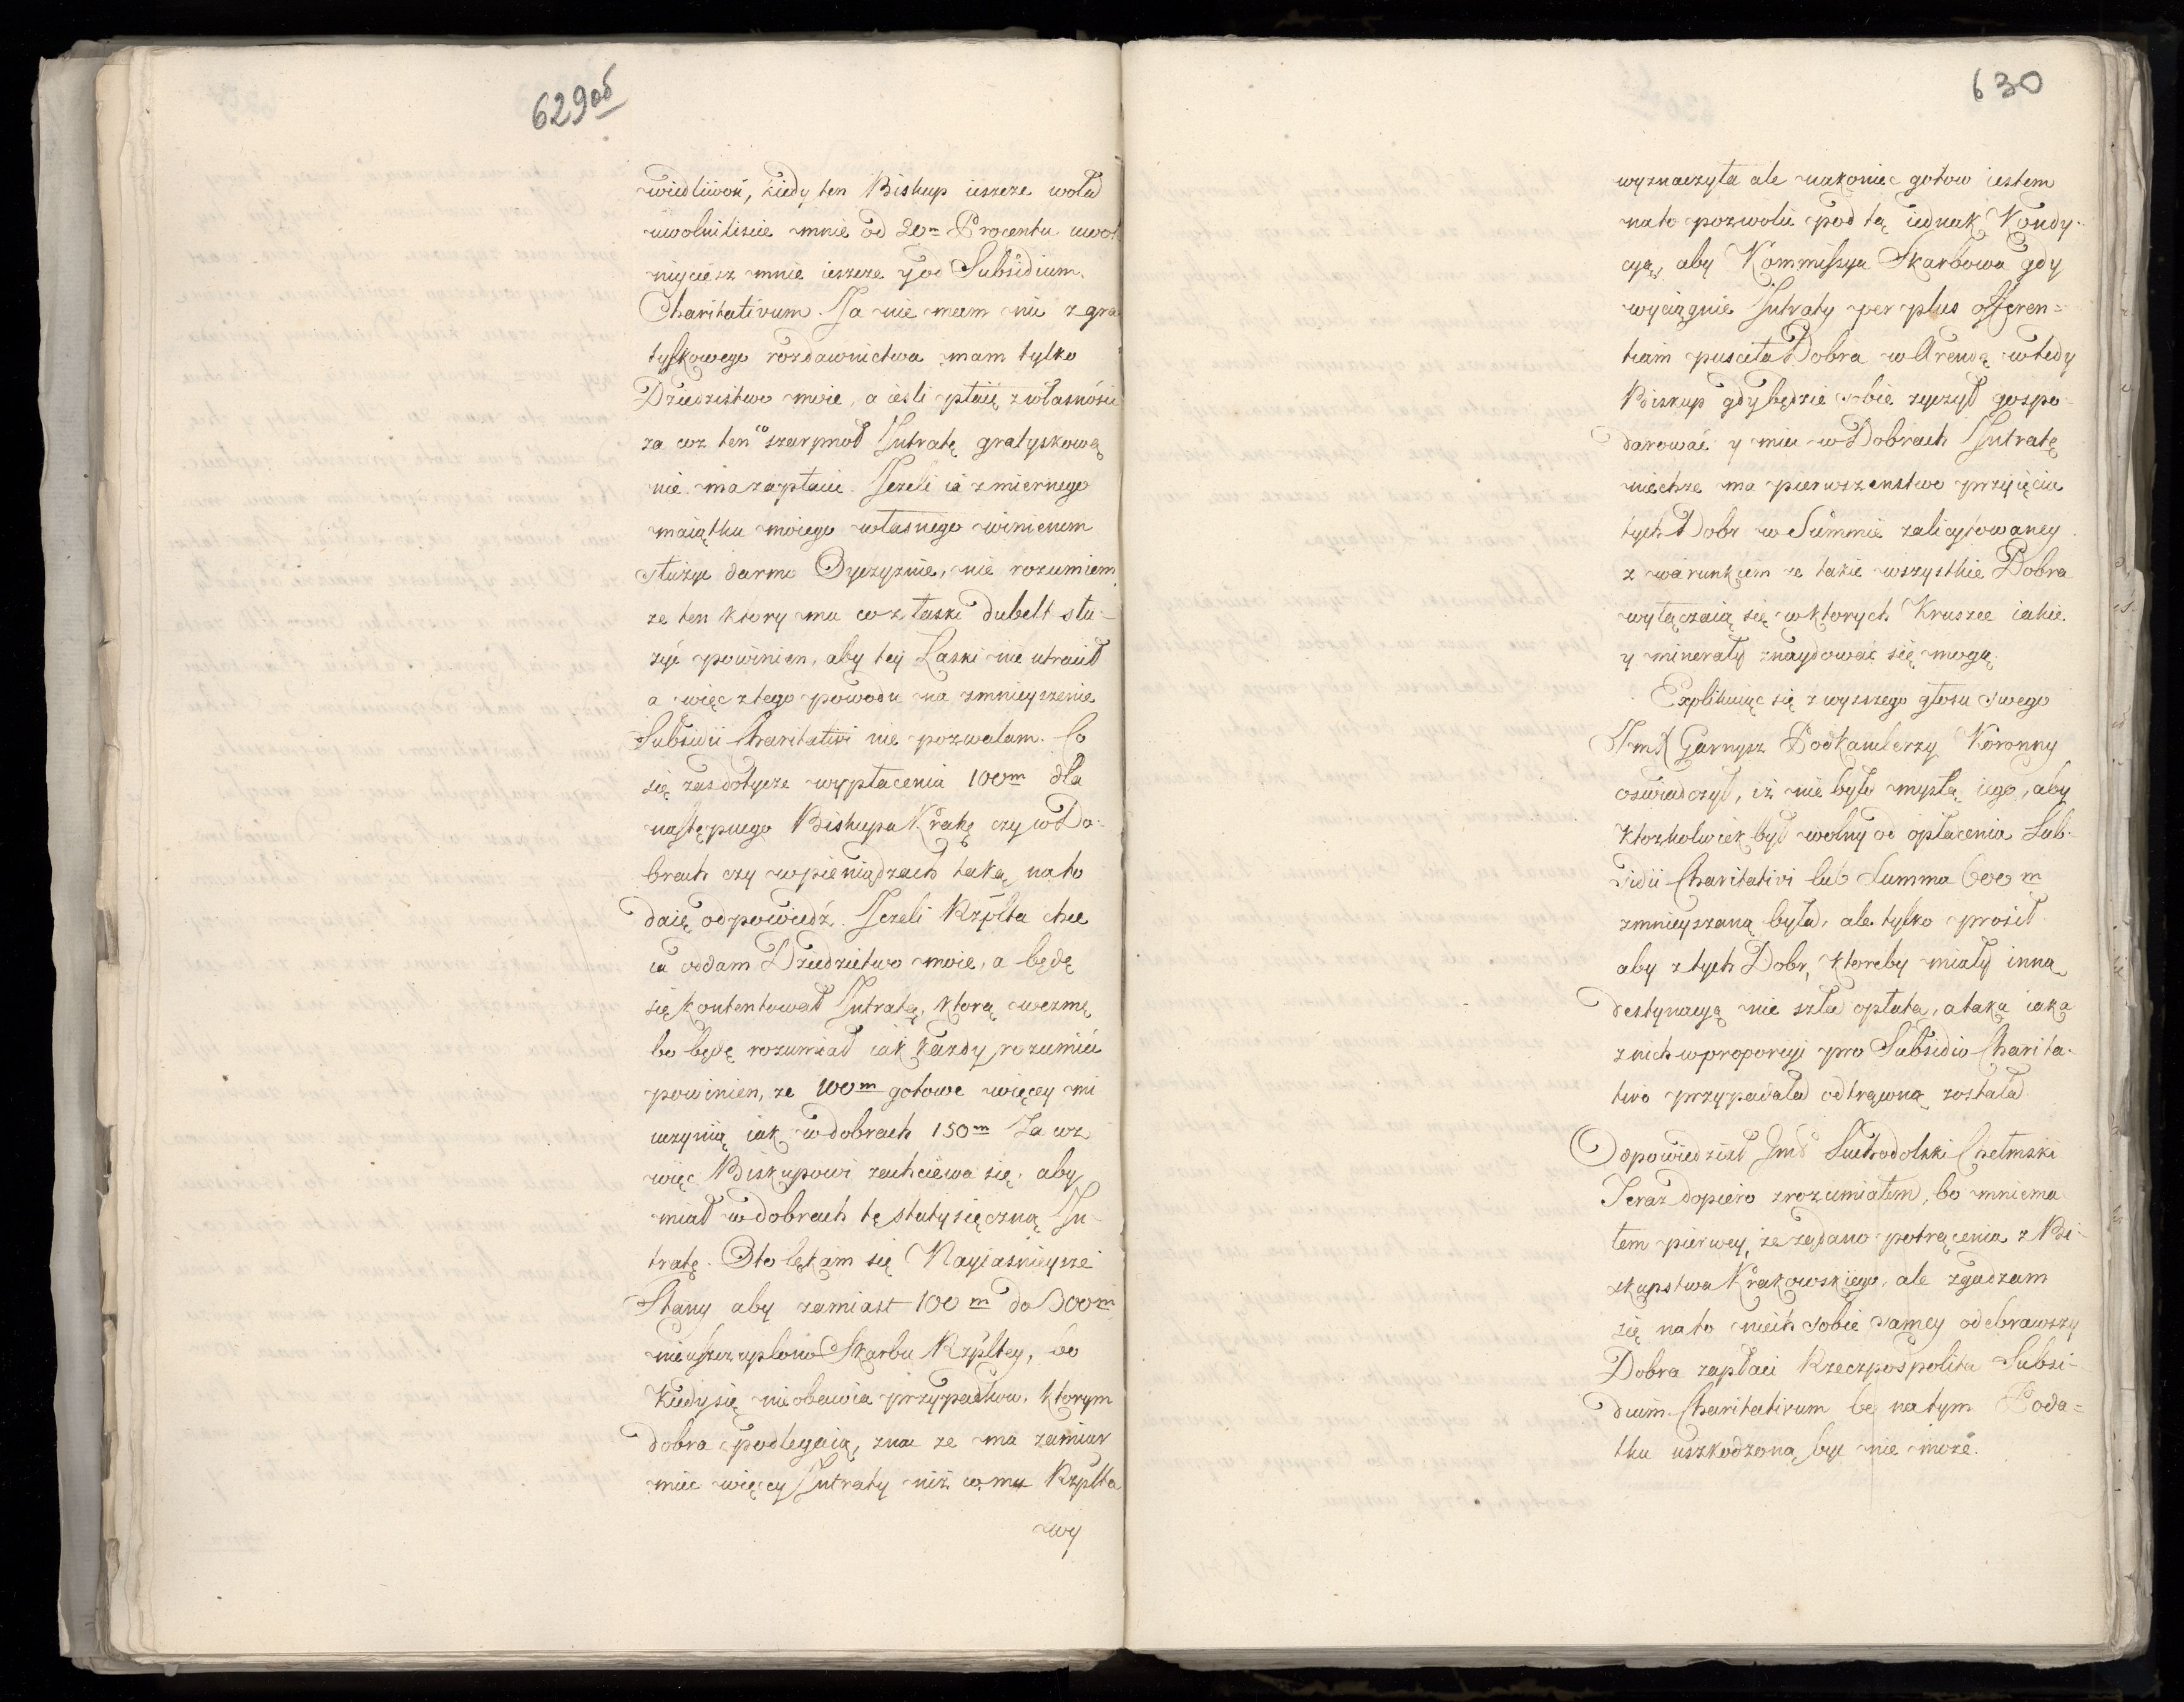 629об
wiedliwość, kiedy ten Biskup ieszcze woła
uwolniliscie mnie od 20m Procentu uwol
niyciesz mnie ieszcze y od Subsidium
Charitativum. Ja nie mam nic z gra
tyskowego rozdawnictwa mam tylko
Dziedzistwo moie, a iesli płacę z własnosci
za coz ten co szarpnoł Jntratę gratyskową
nie ma zapłacic. Jezeli ia z miernego
maiątku moiego własnego winienem
słuzyc darmo Oyczyznie, nie rozumiem
ze ten ktory ma co z łaski dubelt słu-
zyć powinien, aby tey Łaski nie utracił
a więc z tego powodu na zmnieyszenie
Subsidii Charitativi nie pozwalam. Co
się zas dotycze wypłacenia 100m dla
następnego Biskupa Krakg czy w Do-
brach czy w pieniądzach taką na to
daię odpowiedź. Jezeli Rzplta chce
ia oddam Dziedzictwo moie, a będę
się kontentował Jntratą, ktorą wezmę
bo będę rozumiał iak kazdy rozumieć
powinien, ze 100m gotowe więcey mi
uczynią iak w dobrach 150m Za coz
więc Biskupowi zachciewa się, aby
miał w dobrach tę stutysięczną Jn-
tratę. Oto lękam się Nayiasnieysze
Stany aby zamiast 100m do 300m
nieuszczuplono Skarbu Rzpltey, bo
kiedy się nie obawia przypadkow, ktorym
dobra podlegaią, znac ze ma zamiar
miec więcey Jntraty niz co mu Rzplta
wy
630
wyznaczyła ale nakoniec gotow iestem
na to pozwolic pod tą iednak Kondy-
cyą, aby Kommissya Skarbowa gdy
wyciągnie Jntraty per plus offeren=
tiam puscita Dobra w Arendę wtedy
Biskup gdy będzie sobie zyczył gospo-
darować y miec w Dobrach Jntratę
niechze ma pierwszenstwo przyięcia
tych Dobr w Summie zalicytowaney
z warunkiem ze takie wszystkie Dobra
wyłączaią się w ktorych Kruszce iakie
y minerały znaydować się mogą.
Explikuiąc się z wyzszego głosu swego
JmX Garnysz Podkanclerzy Koronny
oswiadczył, iż nie było myslą iego, aby
ktozkolwiek był wolny od opłacenia Sub-
sidii Charitativi lub Summa 600m
zmnieyszaną była, ale tylko prosił
aby z tych Dobr, ktoreby miały inną
destynacyą nie szła opłata, a taka iaka
z nich w proporcyi pro Subsidio Charita-
tivo przypadała odtrąconą została
Odpowiedział JmP Suchodolski Chełmski
Teraz dopiero zrozumiałem, bo mniema
łem pierwey, ze ządano potrącenia z Bi-
skupstwa Krakowskiego, ale zgadzam
się na to niech sobie samey odebrawszy
Dobra zapłaci Rzeczpospolita Subsi-
dium Charitativum bo na tym Poda=
tku uszkodzoną być nie może.